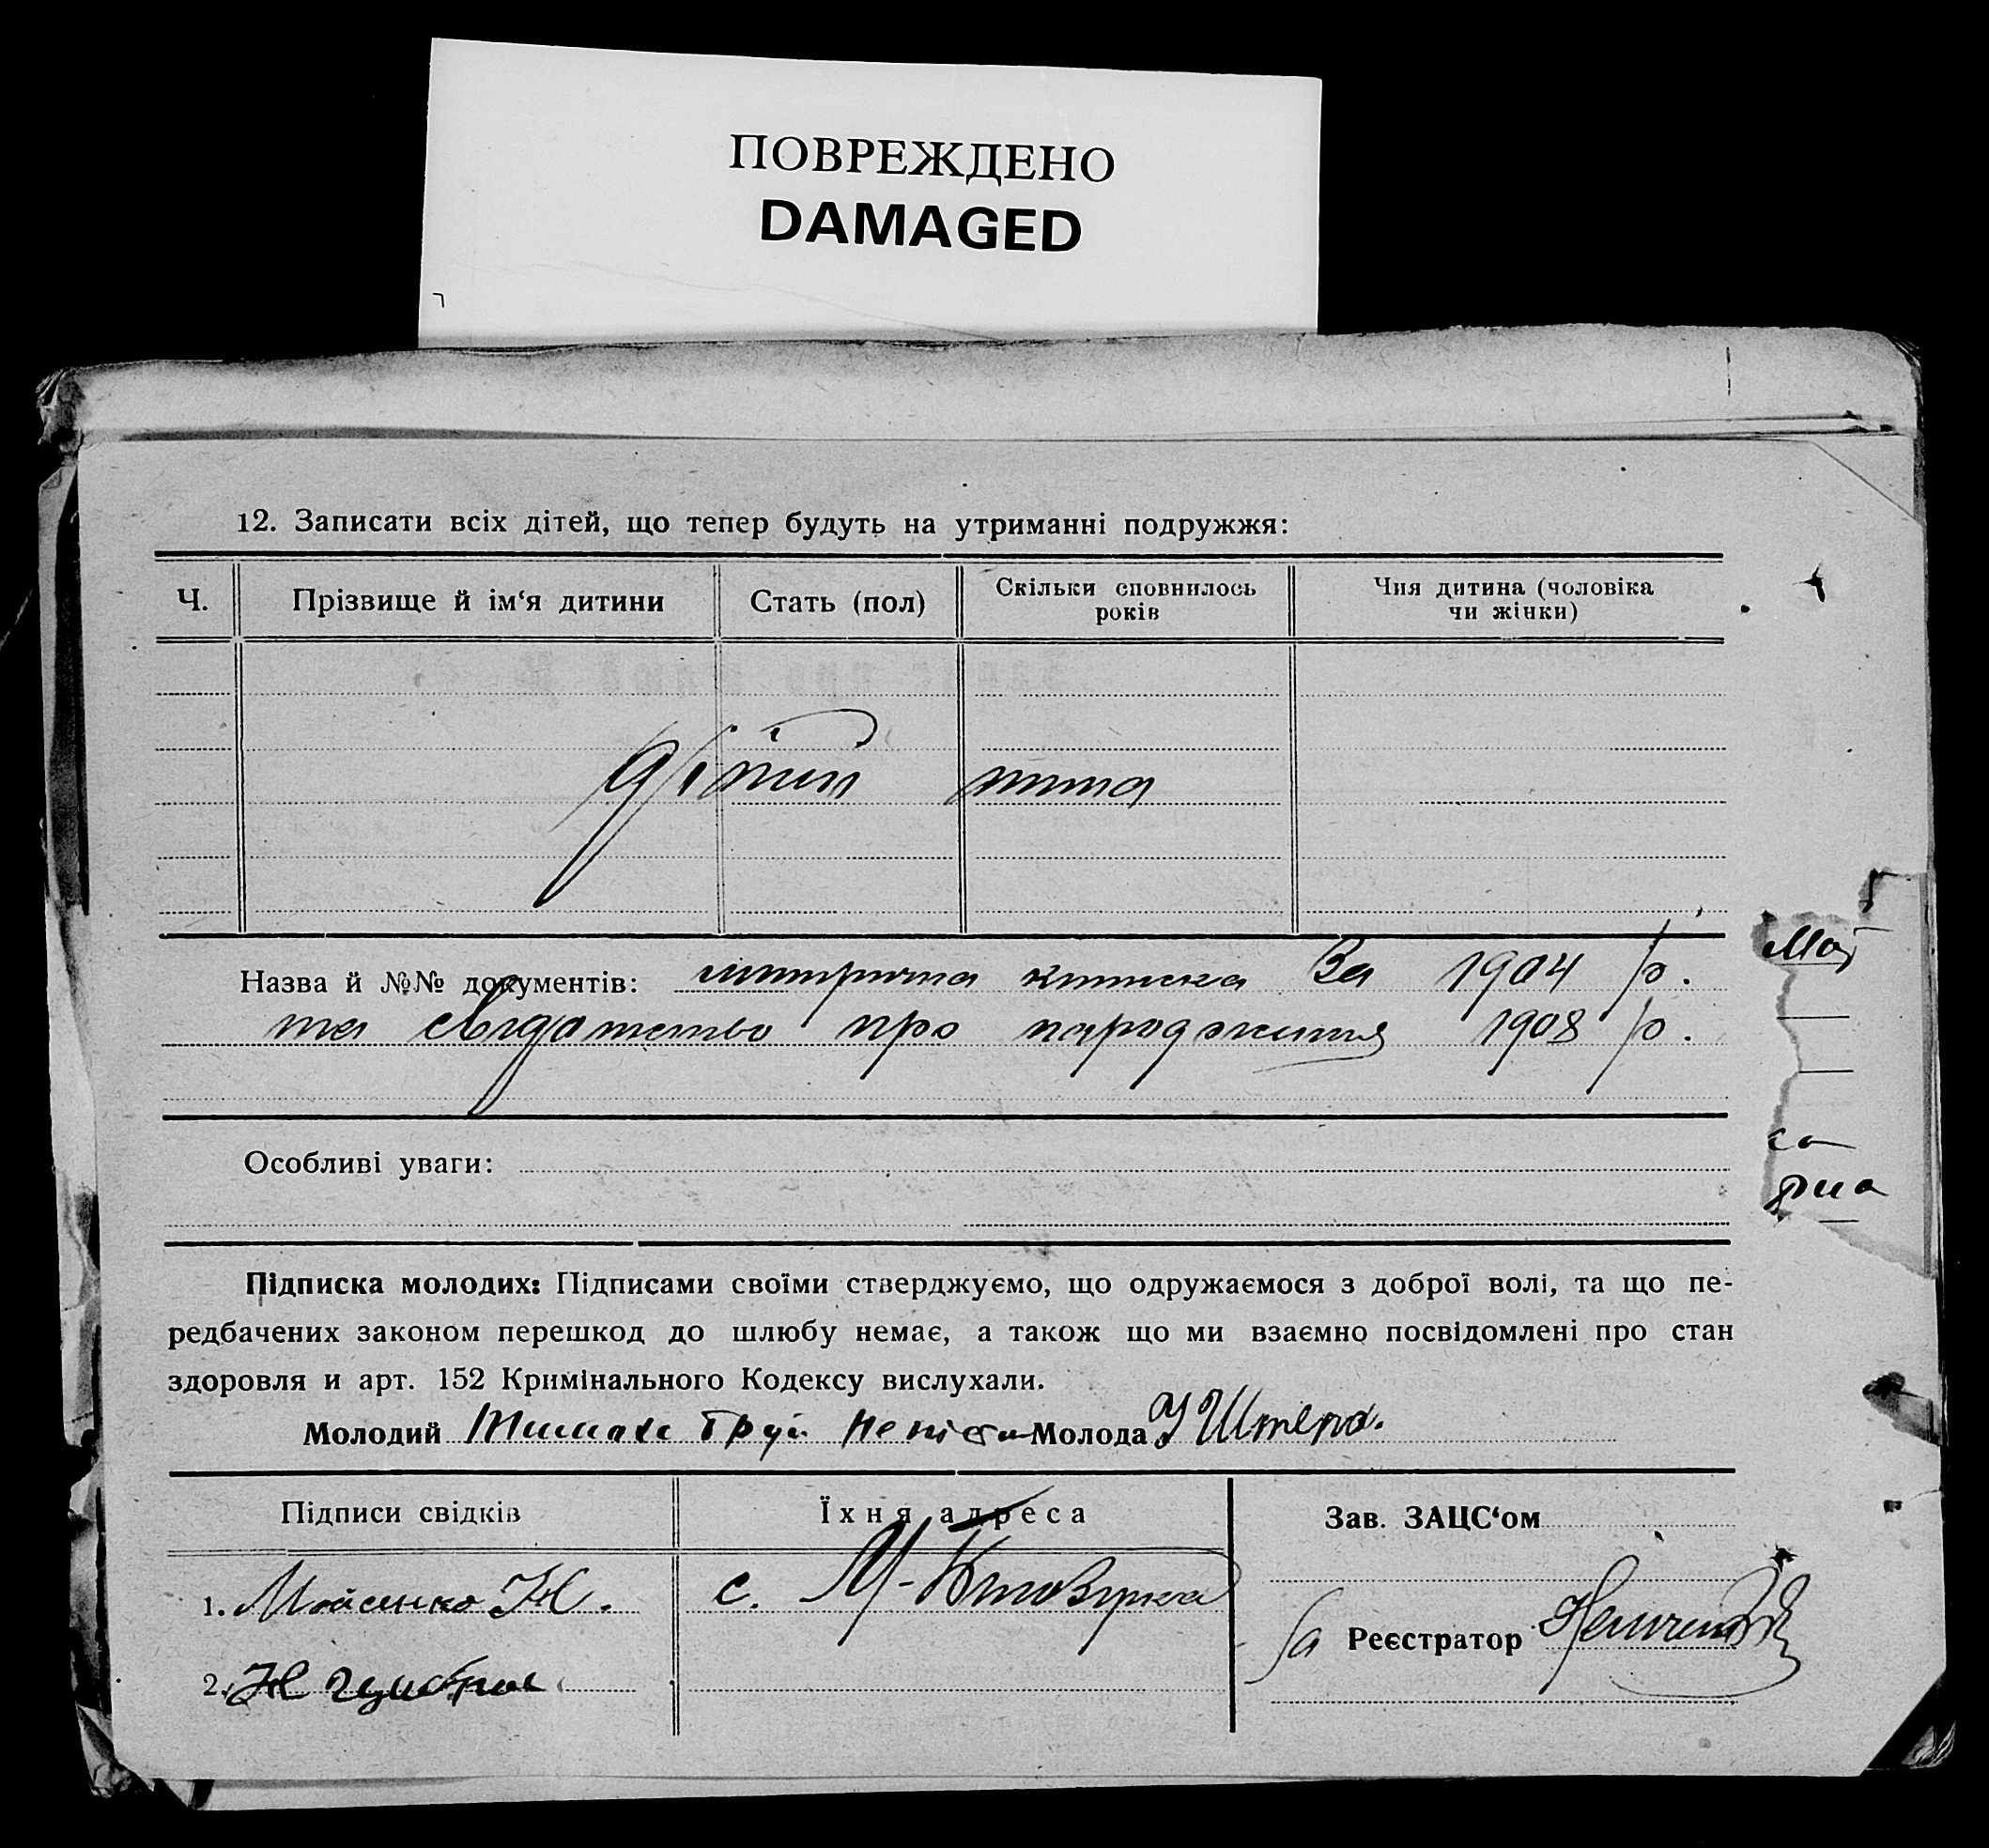 ПОВРЕЖДЕНО
DAMAGED
12. Записати всіх дітей, що тепер будуть на утриманні подружжя:
Ч. Прізвище й ім‘я дитини Стать (пол) Скільки сповнилось років Чия дитина (чоловіка чи жінки)
дітий нима
Назва й №№ документів: митрична книжка За 1904 р.
та свідотство про народження 1908 р.
Особливі уваги:
Підписка молодих: Підписами своїми стверджуємо, що одружаємося з доброї волі, та що пе-
редбачених законом перешкод до шлюбу немає, а також що ми взаємно посвідомлені про стан
здоровля и арт. 152 Кримінального Кодексу вислухали.
Молодий Молода У Штепа.
Підписи свідків Їхня адреса Зав. ЗАЦС‘ом
1. Мойсенко Н. с. М-
за Реєстратор
2. Н
Мой
са
рна